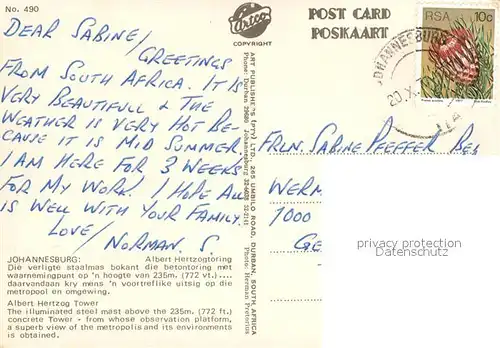 No. 490
Artco
COPYRIGHT
POST CARD
POSKAART
RSA 10c
JOHANNESBURG
20.X
DEAR SABINE/
GREETINGS
FROM SOUTH AFRICA. IT IS
VERY BEAUTIFULL & THE
WEATHER IS VERY HOT BE-
CAUSE IT IS MID SUMMER
I AM HERE FOR 3 WEEKS
FOR MY WORK. I HOPE ALL
IS WELL WITH YOUR FAMILY.
LOVE/
NORMAN. S.
JOHANNESBURG: Albert Hertzogtoring
Die verligte staalmas bokant die betontoring met
waarnemingpunt op 'n hoogte van 235m. (772 vt.) ....
daarvandaan kry mens 'n voortreflike uitsig op die
metropool en omgewing.
Albert Hertzog Tower
The illuminated steel mast above the 235m. (772 ft.)
concrete Tower - from whose observation platform,
a superb view of the metropolis and its environments
is obtained.
ART PUBLISHERS (PTY) LTD., 265 UMBILO ROAD, DURBAN, SOUTH AFRICA
Phone: Durban Johannesburg Photo: Herman Pretorius
FRLN. SABINE PFEFFER BEI
WERM
1000
GE
privacy protection
Datenschutz